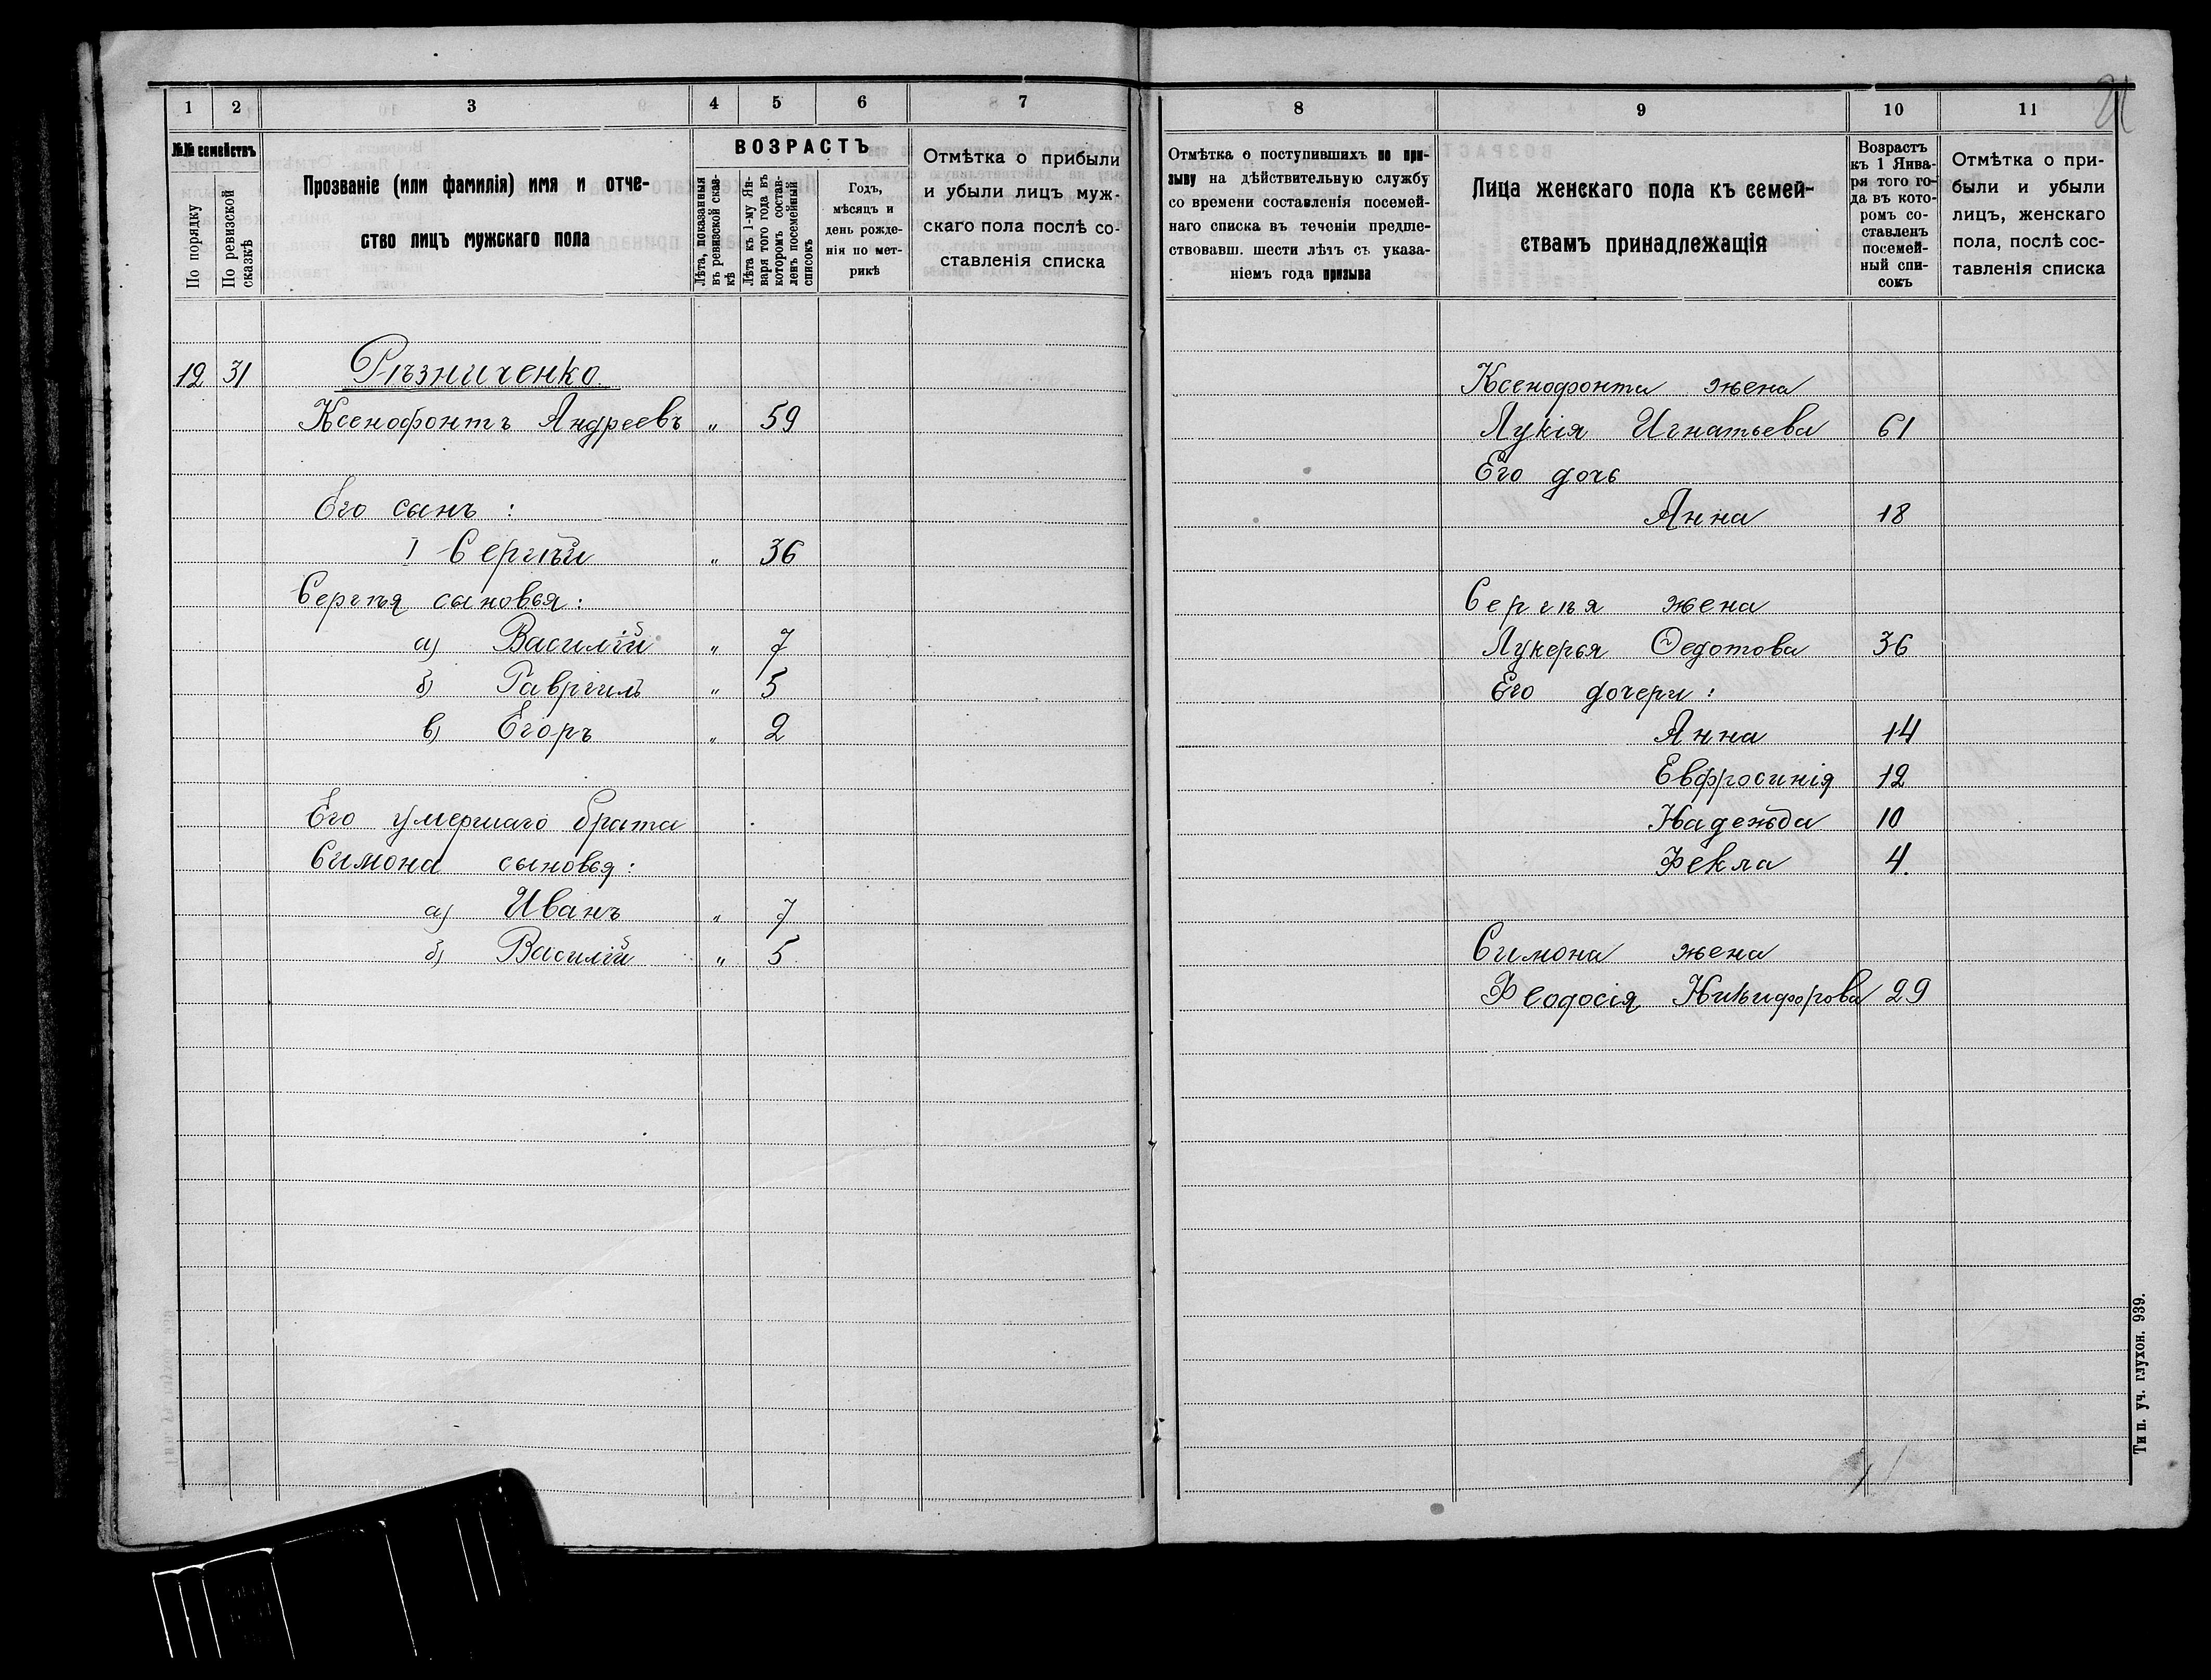 1 2 3 4 5 6 7
№№ семействъ
По порядку
По ревизской сказкѣ
Прозваніе (или фамилія) имя и отче-
ство лицъ мужскаго пола
ВОЗРАСТЪ
Лѣта, показанныя
въ ревизской сказ-
кѣ
Лѣта къ 1-му Ян-
варя того года въ
которомъ состав-
ленъ посемейный
списокъ
Годъ,
мѣсяцъ и
день рожде-
нія по мет-
рикѣ
Отмѣтка о прибыли
и убыли лицъ муж-
скаго пола послѣ со-
ставленія списка
12 31 Рѣзниченко.
Ксенофонтъ Андреевъ „ 59
Его сынъ :
1 Сергѣй „ 36
Сергѣя сыновья :
а) Василій „ 7
б) Гавріилъ „ 5
в) Егоръ „ 2
Его умершаго брата
Симона сыновья :
а) Иванъ „ 7
б) Василій „ 5
8 9 10 11
21
Отмѣтка о поступившихъ по при-
зыву на дѣйствительную службу
со времени составленія посемей-
наго списка въ теченіи предше-
ствовавш. шести лѣтъ съ указа-
ніемъ года призыва
Лица женскаго пола къ семей-
ствамъ принадлежащія
Возрастъ
къ 1 Янва-
ря того го-
да въ кото-
ромъ со-
ставленъ
посемей-
ный спи-
сокъ
Отмѣтка о при-
были и убыли
лицъ, женскаго
пола, послѣ сос-
тавленія списка
Ксенофонта жена
Лукія Игнатьева 61
Его дочь
Анна 18
Сергѣя жена
Лукерья Ѳедотова 36
Его дочери :
Анна 14
Евфросинія 12
Надежда 10
Фекла 4.
Симона жена
Феодосія Никифорова 29
Тип. уч. глухон. 939.